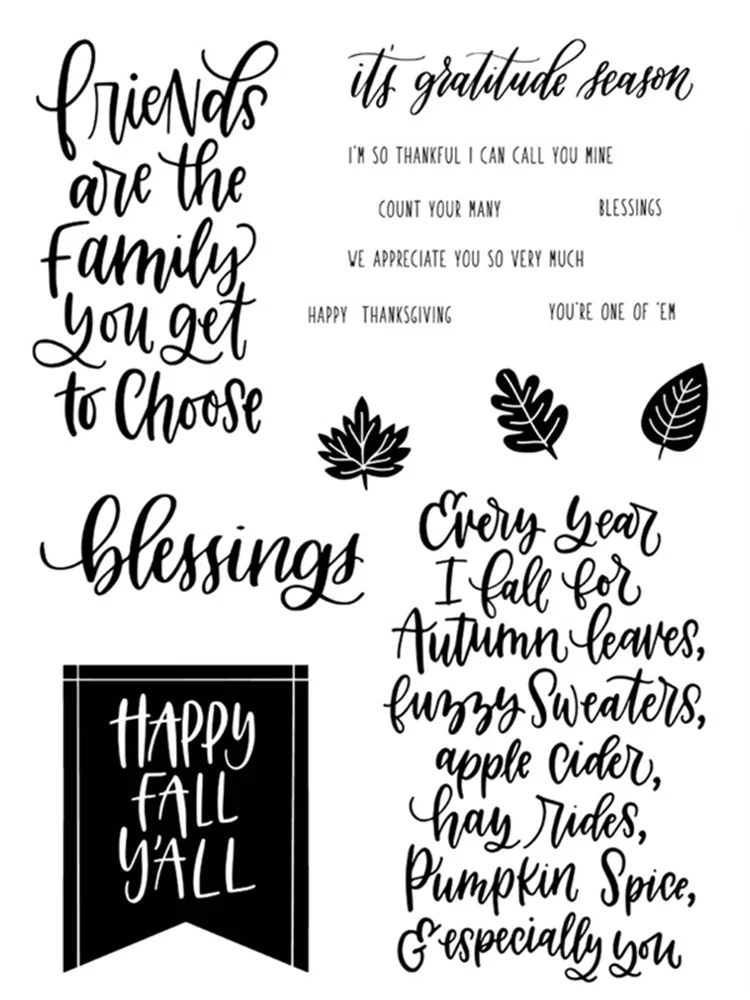 friends
are the
Family
you get
to Choose
it's gratitude season
I'M SO THANKFUL I CAN CALL YOU MINE
COUNT YOUR MANY
BLESSINGS
WE APPRECIATE YOU SO VERY MUCH
HAPPY THANKSGIVING
YOU'RE ONE OF 'EM
blessings
HAPPY
FALL
Y'ALL
Every year
I fall for
Autumn leaves,
fuzzy Sweaters,
apple cider,
hay rides,
Pumpkin Spice,
& especially you